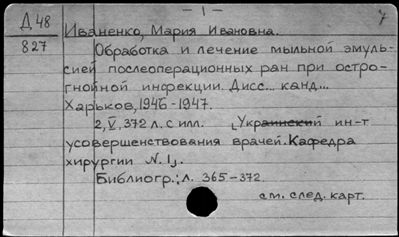 - 1 -
7
Д 48
827
Иваненко, Мария Ивановна.
Обработка и лечение мыльной эмуль-
сией послеоперационных ран при остро-
гнойной инфекции. Дисс... канд...
Харьков, 1946-1947.
2, V, 372 л. с илл. [Украинский ин-т
усовершенствования врачей. Кафедра
хирургии N. 1].
Библиогр.: л. 365-372.
см. след. карт.